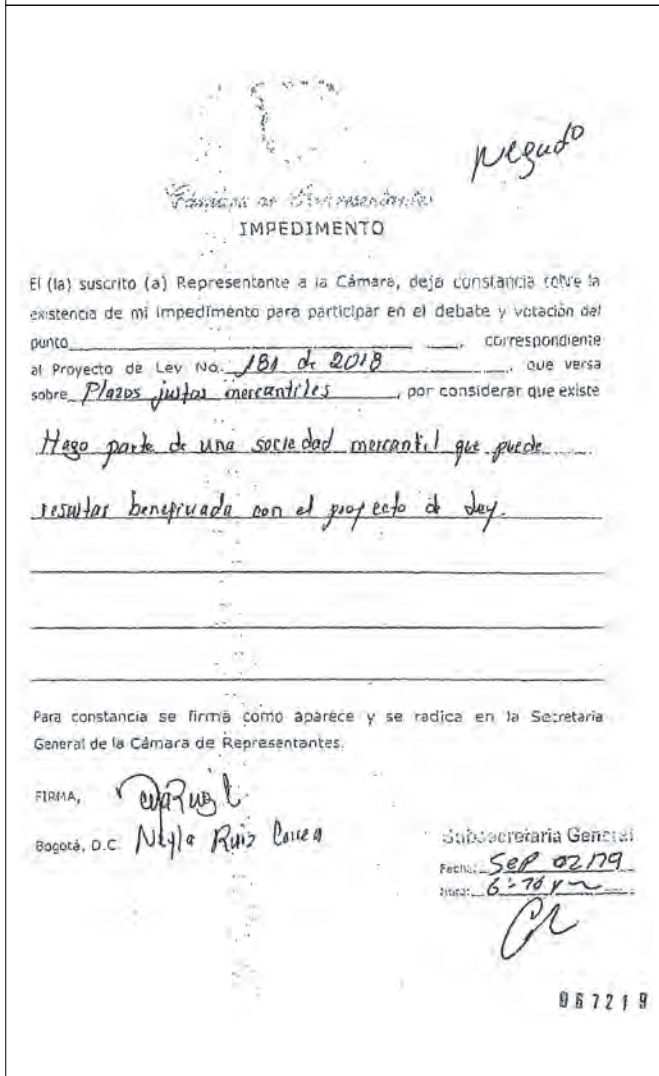 Negado
Cámara de Representantes
IMPEDIMENTO
El (la) suscrito (a) Representante a la Cámara, deja constancia sobre la
existencia de mi impedimento para participar en el debate y votación del
punto , correspondiente
al Proyecto de Ley No. 181 de 2018, que versa
sobre Plazos justos mercantiles, por considerar que existe
Hago parte de una sociedad mercantil que puede
resultar beneficiada con el proyecto de Ley.
Para constancia se firma como aparece y se radica en la Secretaria
General de la Cámara de Representantes.
FIRMA,
Bogotá, D.C. Neyla Ruiz Correa
Subsecretaria General
Fecha: Sep 02/19
Hora:
067219